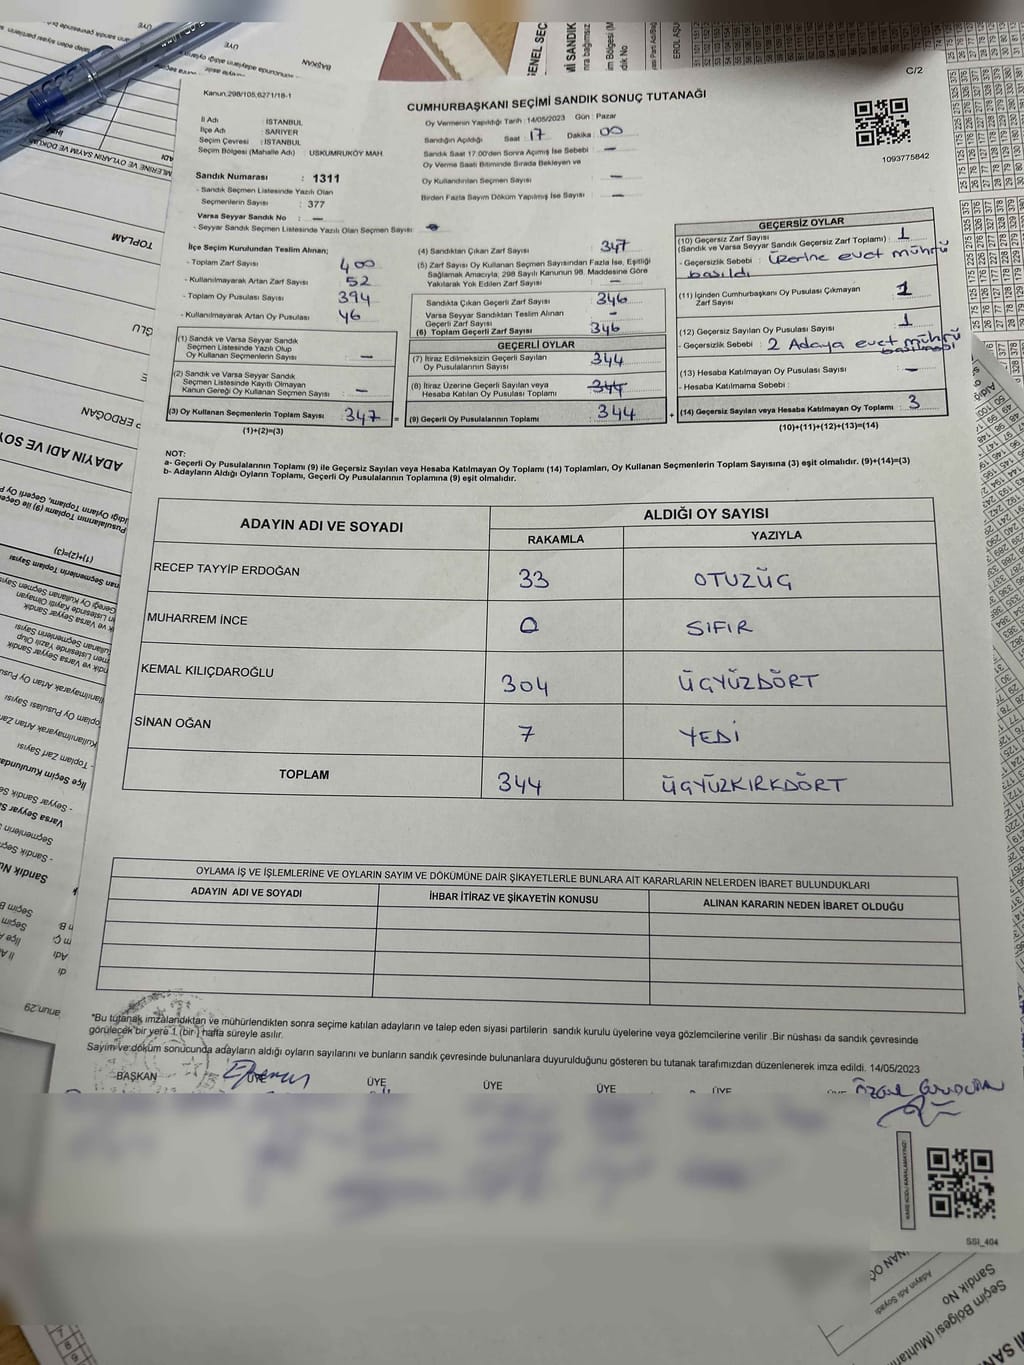 C/2
Kanun;298/105,6271/18-1
CUMHURBAŞKANI SEÇİMİ SANDIK SONUÇ TUTANAĞI
1093775842
İl Adı : İSTANBUL
İlçe Adı : SARIYER
Seçim Çevresi : İSTANBUL
Seçim Bölgesi (Mahalle Adı) : USKUMRUKÖY MAH.
Sandık Numarası : 1311
- Sandık Seçmen Listesinde Yazılı Olan
Seçmenlerin Sayısı : 377
Varsa Seyyar Sandık No : —
- Seyyar Sandık Seçmen Listesinde Yazılı Olan Seçmen Sayısı :
Oy Vermenin Yapıldığı Tarih : 14/05/2023 Gün : Pazar
Sandığın Açıldığı Saat : 17 Dakika : 00
Sandık Saat 17.00'den Sonra Açılmış İse Sebebi : —
Oy Verme Saati Bitiminde Sırada Bekleyen ve
Oy Kullandırılan Seçmen Sayısı : —
Birden Fazla Sayım Döküm Yapılmış İse Sayısı : —
İlçe Seçim Kurulundan Teslim Alınan;
- Toplam Zarf Sayısı : 400
- Kullanılmayarak Artan Zarf Sayısı : 52
- Toplam Oy Pusulası Sayısı : 394
- Kullanılmayarak Artan Oy Pusulası : 46
(1) Sandık ve Varsa Seyyar Sandık
Seçmen Listesinde Yazılı Olup
Oy Kullanan Seçmenlerin Sayısı : —
(2) Sandık ve Varsa Seyyar Sandık
Seçmen Listesinde Kayıtlı Olmayan
Kanun Gereği Oy Kullanan Seçmen Sayısı : —
(3) Oy Kullanan Seçmenlerin Toplam Sayısı : 347
(1)+(2)=(3)
(4) Sandıktan Çıkan Zarf Sayısı : 347
(5) Zarf Sayısı Oy Kullanan Seçmen Sayısından Fazla İse, Eşitliği
Sağlamak Amacıyla; 298 Sayılı Kanunun 98. Maddesine Göre
Yakılarak Yok Edilen Zarf Sayısı : —
Sandıkta Çıkan Geçerli Zarf Sayısı : 346
Varsa Seyyar Sandıktan Teslim Alınan
Geçerli Zarf Sayısı : —
(6) Toplam Geçerli Zarf Sayısı : 346
GEÇERLİ OYLAR
(7) İtiraz Edilmeksizin Geçerli Sayılan
Oy Pusulalarının Sayısı : 344
(8) İtiraz Üzerine Geçerli Sayılan veya
Hesaba Katılan Oy Pusulası Toplamı : 344
(9) Geçerli Oy Pusulalarının Toplamı : 344
GEÇERSİZ OYLAR
(10) Geçersiz Zarf Sayısı
(Sandık ve Varsa Seyyar Sandık Geçersiz Zarf Toplamı) : 1
- Geçersizlik Sebebi : Üzerine evet mührü
basıldı
(11) İçinden Cumhurbaşkanı Oy Pusulası Çıkmayan
Zarf Sayısı : 1
(12) Geçersiz Sayılan Oy Pusulası Sayısı : 1
- Geçersizlik Sebebi : 2 Adaya evet mührü
basılması
(13) Hesaba Katılmayan Oy Pusulası Sayısı : —
- Hesaba Katılmama Sebebi :
(14) Geçersiz Sayılan veya Hesaba Katılmayan Oy Toplamı : 3
(10)+(11)+(12)+(13)=(14)
NOT:
a- Geçerli Oy Pusulalarının Toplamı (9) ile Geçersiz Sayılan veya Hesaba Katılmayan Oy Toplamı (14) Toplamları, Oy Kullanan Seçmenlerin Toplam Sayısına (3) eşit olmalıdır. (9)+(14)=(3)
b- Adayların Aldığı Oyların Toplamı, Geçerli Oy Pusulalarının Toplamına (9) eşit olmalıdır.
ADAYIN ADI VE SOYADI ALDIĞI OY SAYISI
RAKAMLA YAZIYLA
RECEP TAYYİP ERDOĞAN 33 OTUZÜÇ
MUHARREM İNCE 0 SIFIR
KEMAL KILIÇDAROĞLU 304 ÜÇYÜZDÖRT
SİNAN OĞAN 7 YEDİ
TOPLAM 344 ÜÇYÜZKIRKDÖRT
OYLAMA İŞ VE İŞLEMLERİNE VE OYLARIN SAYIM VE DÖKÜMÜNE DAİR ŞİKAYETLERLE BUNLARA AİT KARARLARIN NELERDEN İBARET BULUNDUKLARI
ADAYIN ADI VE SOYADI İHBAR İTİRAZ VE ŞİKAYETİN KONUSU ALINAN KARARIN NEDEN İBARET OLDUĞU
"Bu tutanak imzalandıktan ve mühürlendikten sonra seçime katılan adayların ve talep eden siyasi partilerin sandık kurulu üyelerine veya gözlemcilerine verilir .Bir nüshası da sandık çevresinde
görülecek bir yere 1 (bir) hafta süreyle asılır.
Sayım ve döküm sonucunda adayların aldığı oyların sayılarını ve bunların sandık çevresinde bulunanlara duyurulduğunu gösteren bu tutanak tarafımızdan düzenlenerek imza edildi. 14/05/2023
BAŞKAN ÜYE ÜYE ÜYE ÜYE ÜYE
KARE KODU KARALAMAYINIZ!
SSI_404